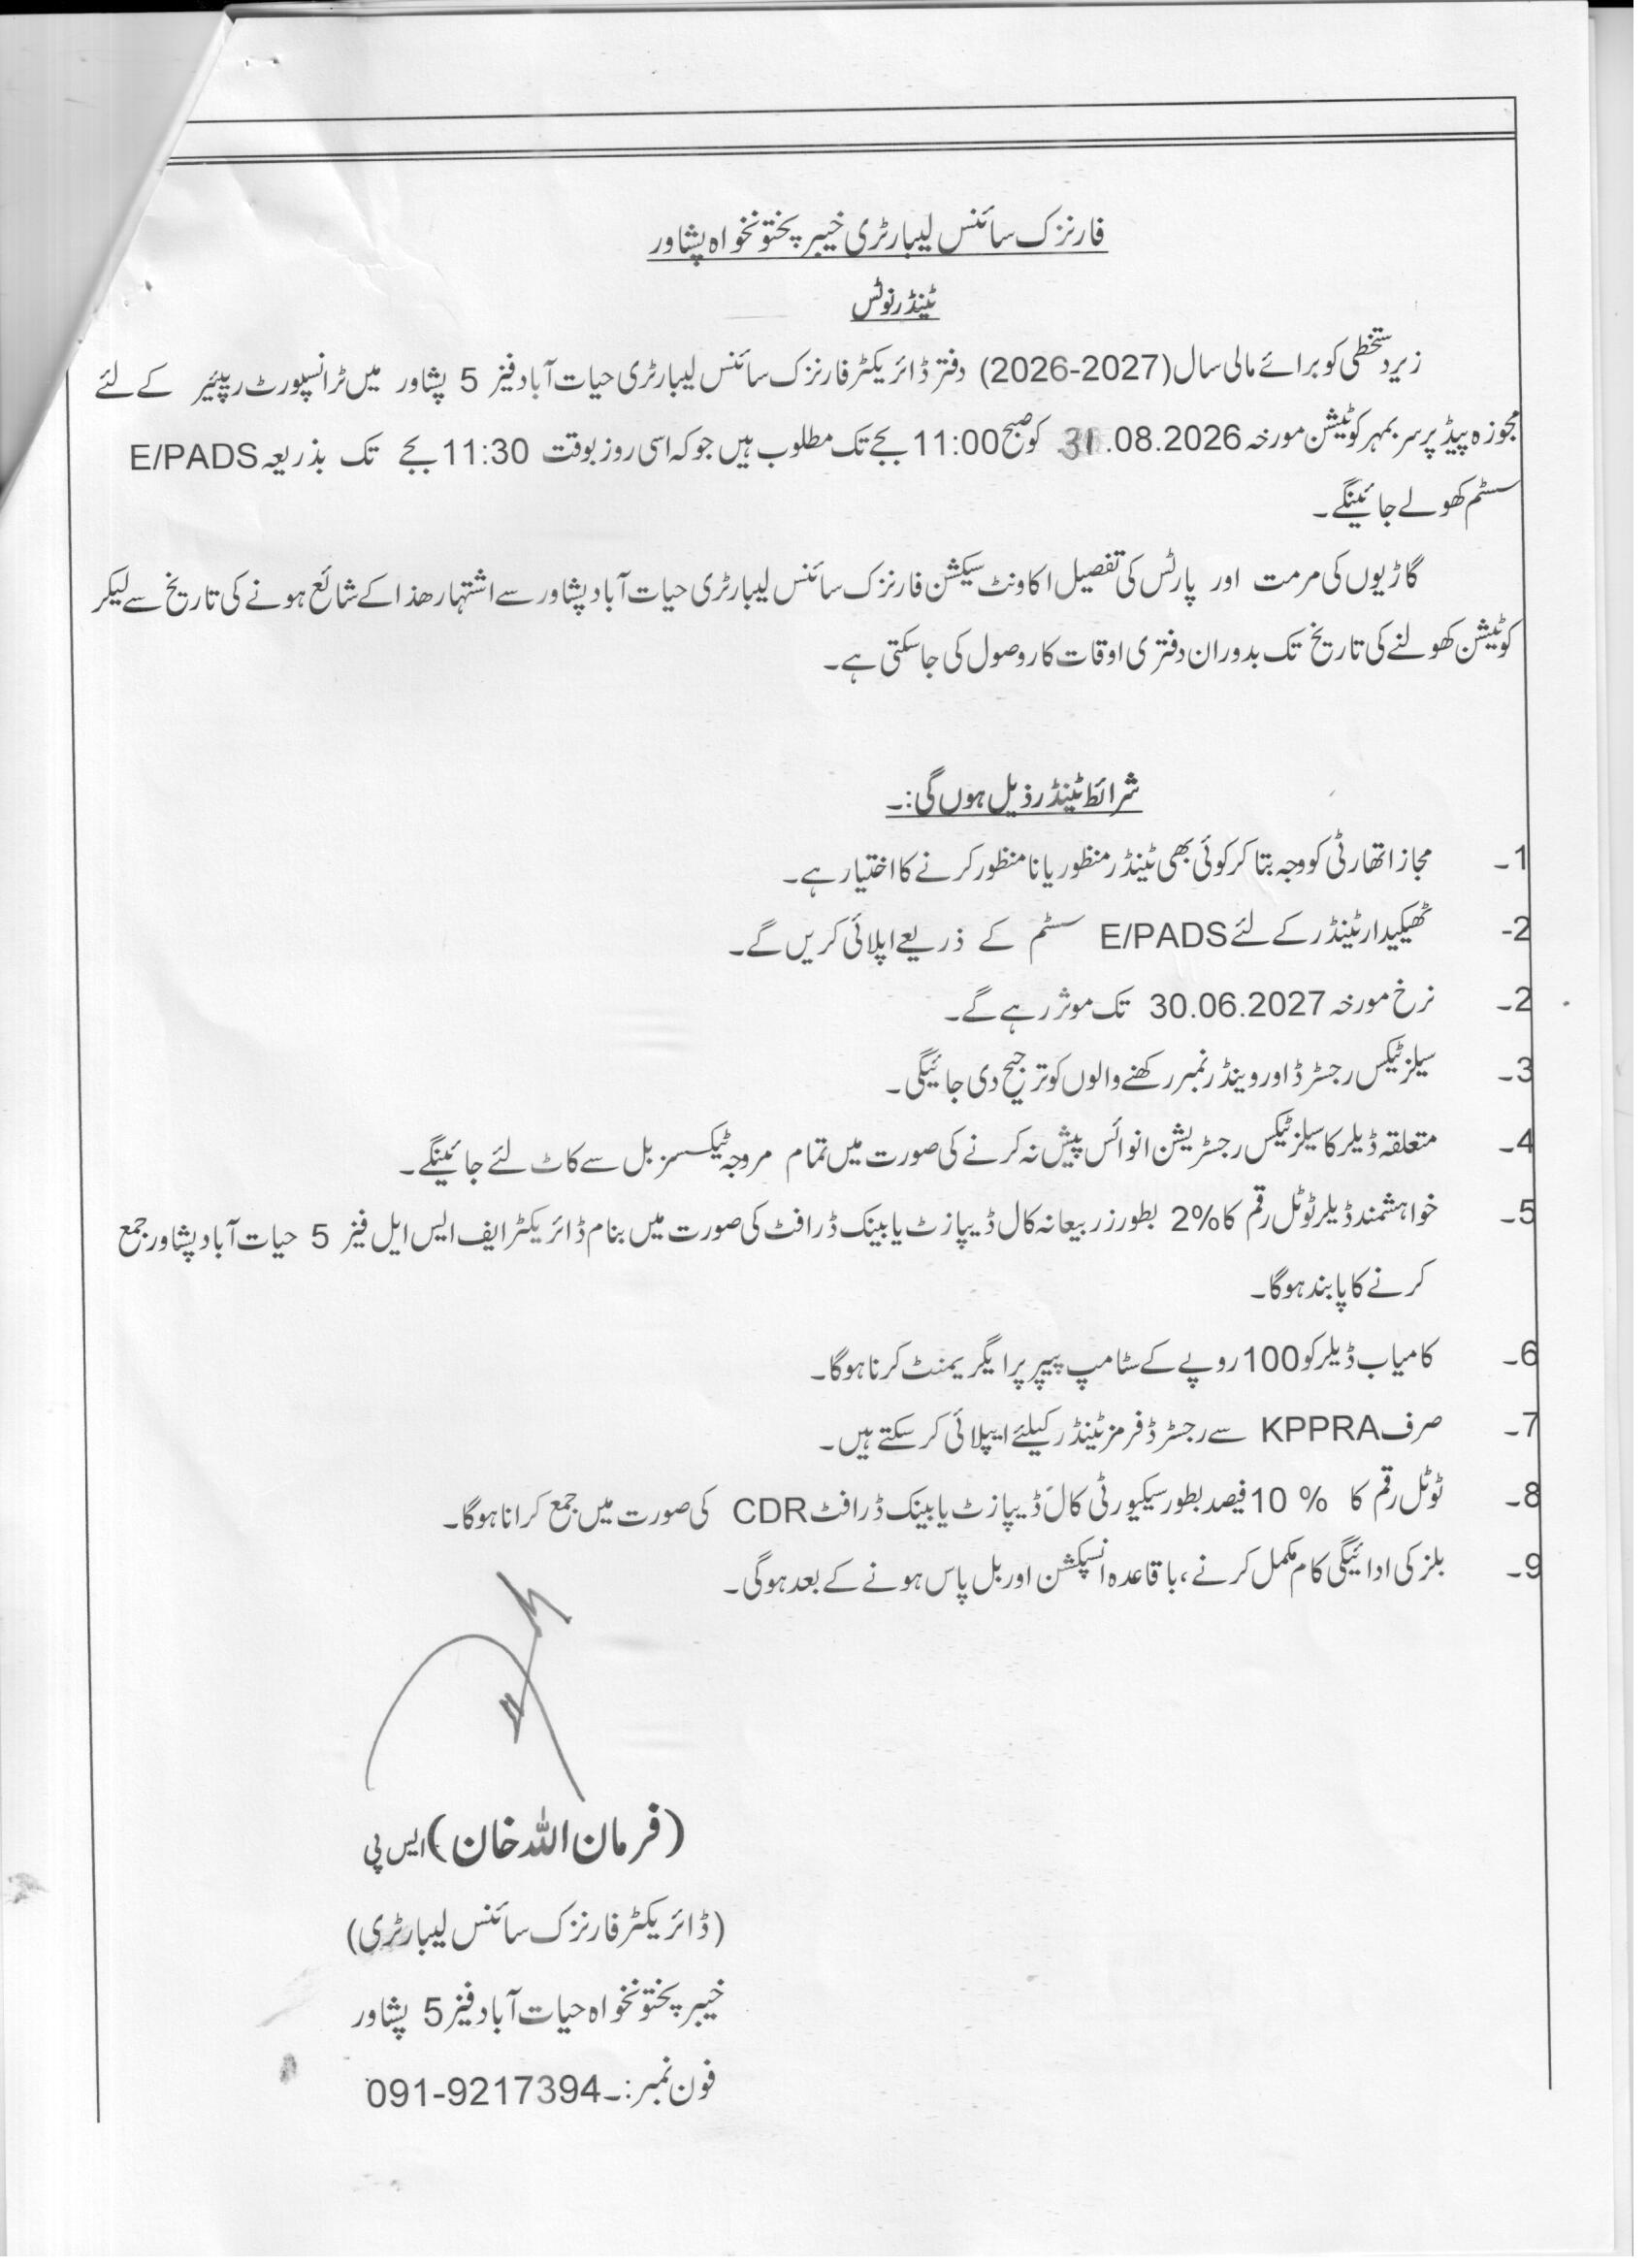 فارنزک سائنس لیبارٹری خیبر پختونخواہ پشاور
ٹینڈر نوٹس
زیر دستخطی کو برائے مالی سال (2026-2027) دفتر ڈائریکٹر فارنزک سائنس لیبارٹری حیات آباد فیز 5 پشاور میں ٹرانسپورٹ رپیئر کے لئے
مجوزہ پیڈ پر سر بمہر کوٹیشن مورخہ 31.08.2026 کو صبح 11:00 بجے تک مطلوب ہیں جو کہ اسی روز بوقت 11:30 بجے تک بذریعہ E/PADS
سسٹم کھولے جائینگے۔
گاڑیوں کی مرمت اور پارٹس کی تفصیل اکاونٹ سیکشن فارنزک سائنس لیبارٹری حیات آباد پشاور سے اشتہار ھذا کے شائع ہونے کی تاریخ سے لیکر
کوٹیشن کھولنے کی تاریخ تک بدوران دفتری اوقات کار وصول کی جاسکتی ہے۔
شرائط ٹینڈر ذیل ہوں گی:۔
1۔ مجاز اتھارٹی کو وجہ بتا کر کوئی بھی ٹینڈر منظور یا نا منظور کرنے کا اختیار ہے۔
2- ٹھیکیدار ٹینڈر کے لئے E/PADS سسٹم کے ذریعے اپلائی کریں گے۔
2۔ نرخ مورخہ 30.06.2027 تک موثر رہے گے۔
3۔ سیلز ٹیکس رجسٹرڈ اور وینڈر نمبر رکھنے والوں کو ترجیح دی جائیگی۔
4۔ متعلقہ ڈیلر کا سیلز ٹیکس رجسٹریشن انوائس پیش نہ کرنے کی صورت میں تمام مروجہ ٹیکسسز بل سے کاٹ لئے جائینگے۔
5۔ خواہشمند ڈیلر ٹوٹل رقم کا 2% بطور زر بیعانہ کال ڈیپازٹ یا بینک ڈرافٹ کی صورت میں بنام ڈائریکٹر ایف ایس ایل فیز 5 حیات آباد پشاور جمع
کرنے کا پابند ہوگا۔
6۔ کامیاب ڈیلر کو 100 روپے کے سٹامپ پیپر پر ایگریمنٹ کرنا ہوگا۔
7۔ صرف KPPRA سے رجسٹرڈ فرمز ٹینڈر کیلئے ایپلائی کر سکتے ہیں۔
8۔ ٹوٹل رقم کا % 10 فیصد بطور سیکیورٹی کال ڈیپازٹ یا بینک ڈرافٹ CDR کی صورت میں جمع کرانا ہوگا۔
9۔ بلز کی ادائیگی کام مکمل کرنے، باقاعدہ انسپکشن اور بل پاس ہونے کے بعد ہوگی۔
(فرمان اللہ خان) ایس پی
(ڈائریکٹر فارنزک سائنس لیبارٹری)
خیبر پختونخواہ حیات آباد فیز 5 پشاور
فون نمبر:۔ 091-9217394